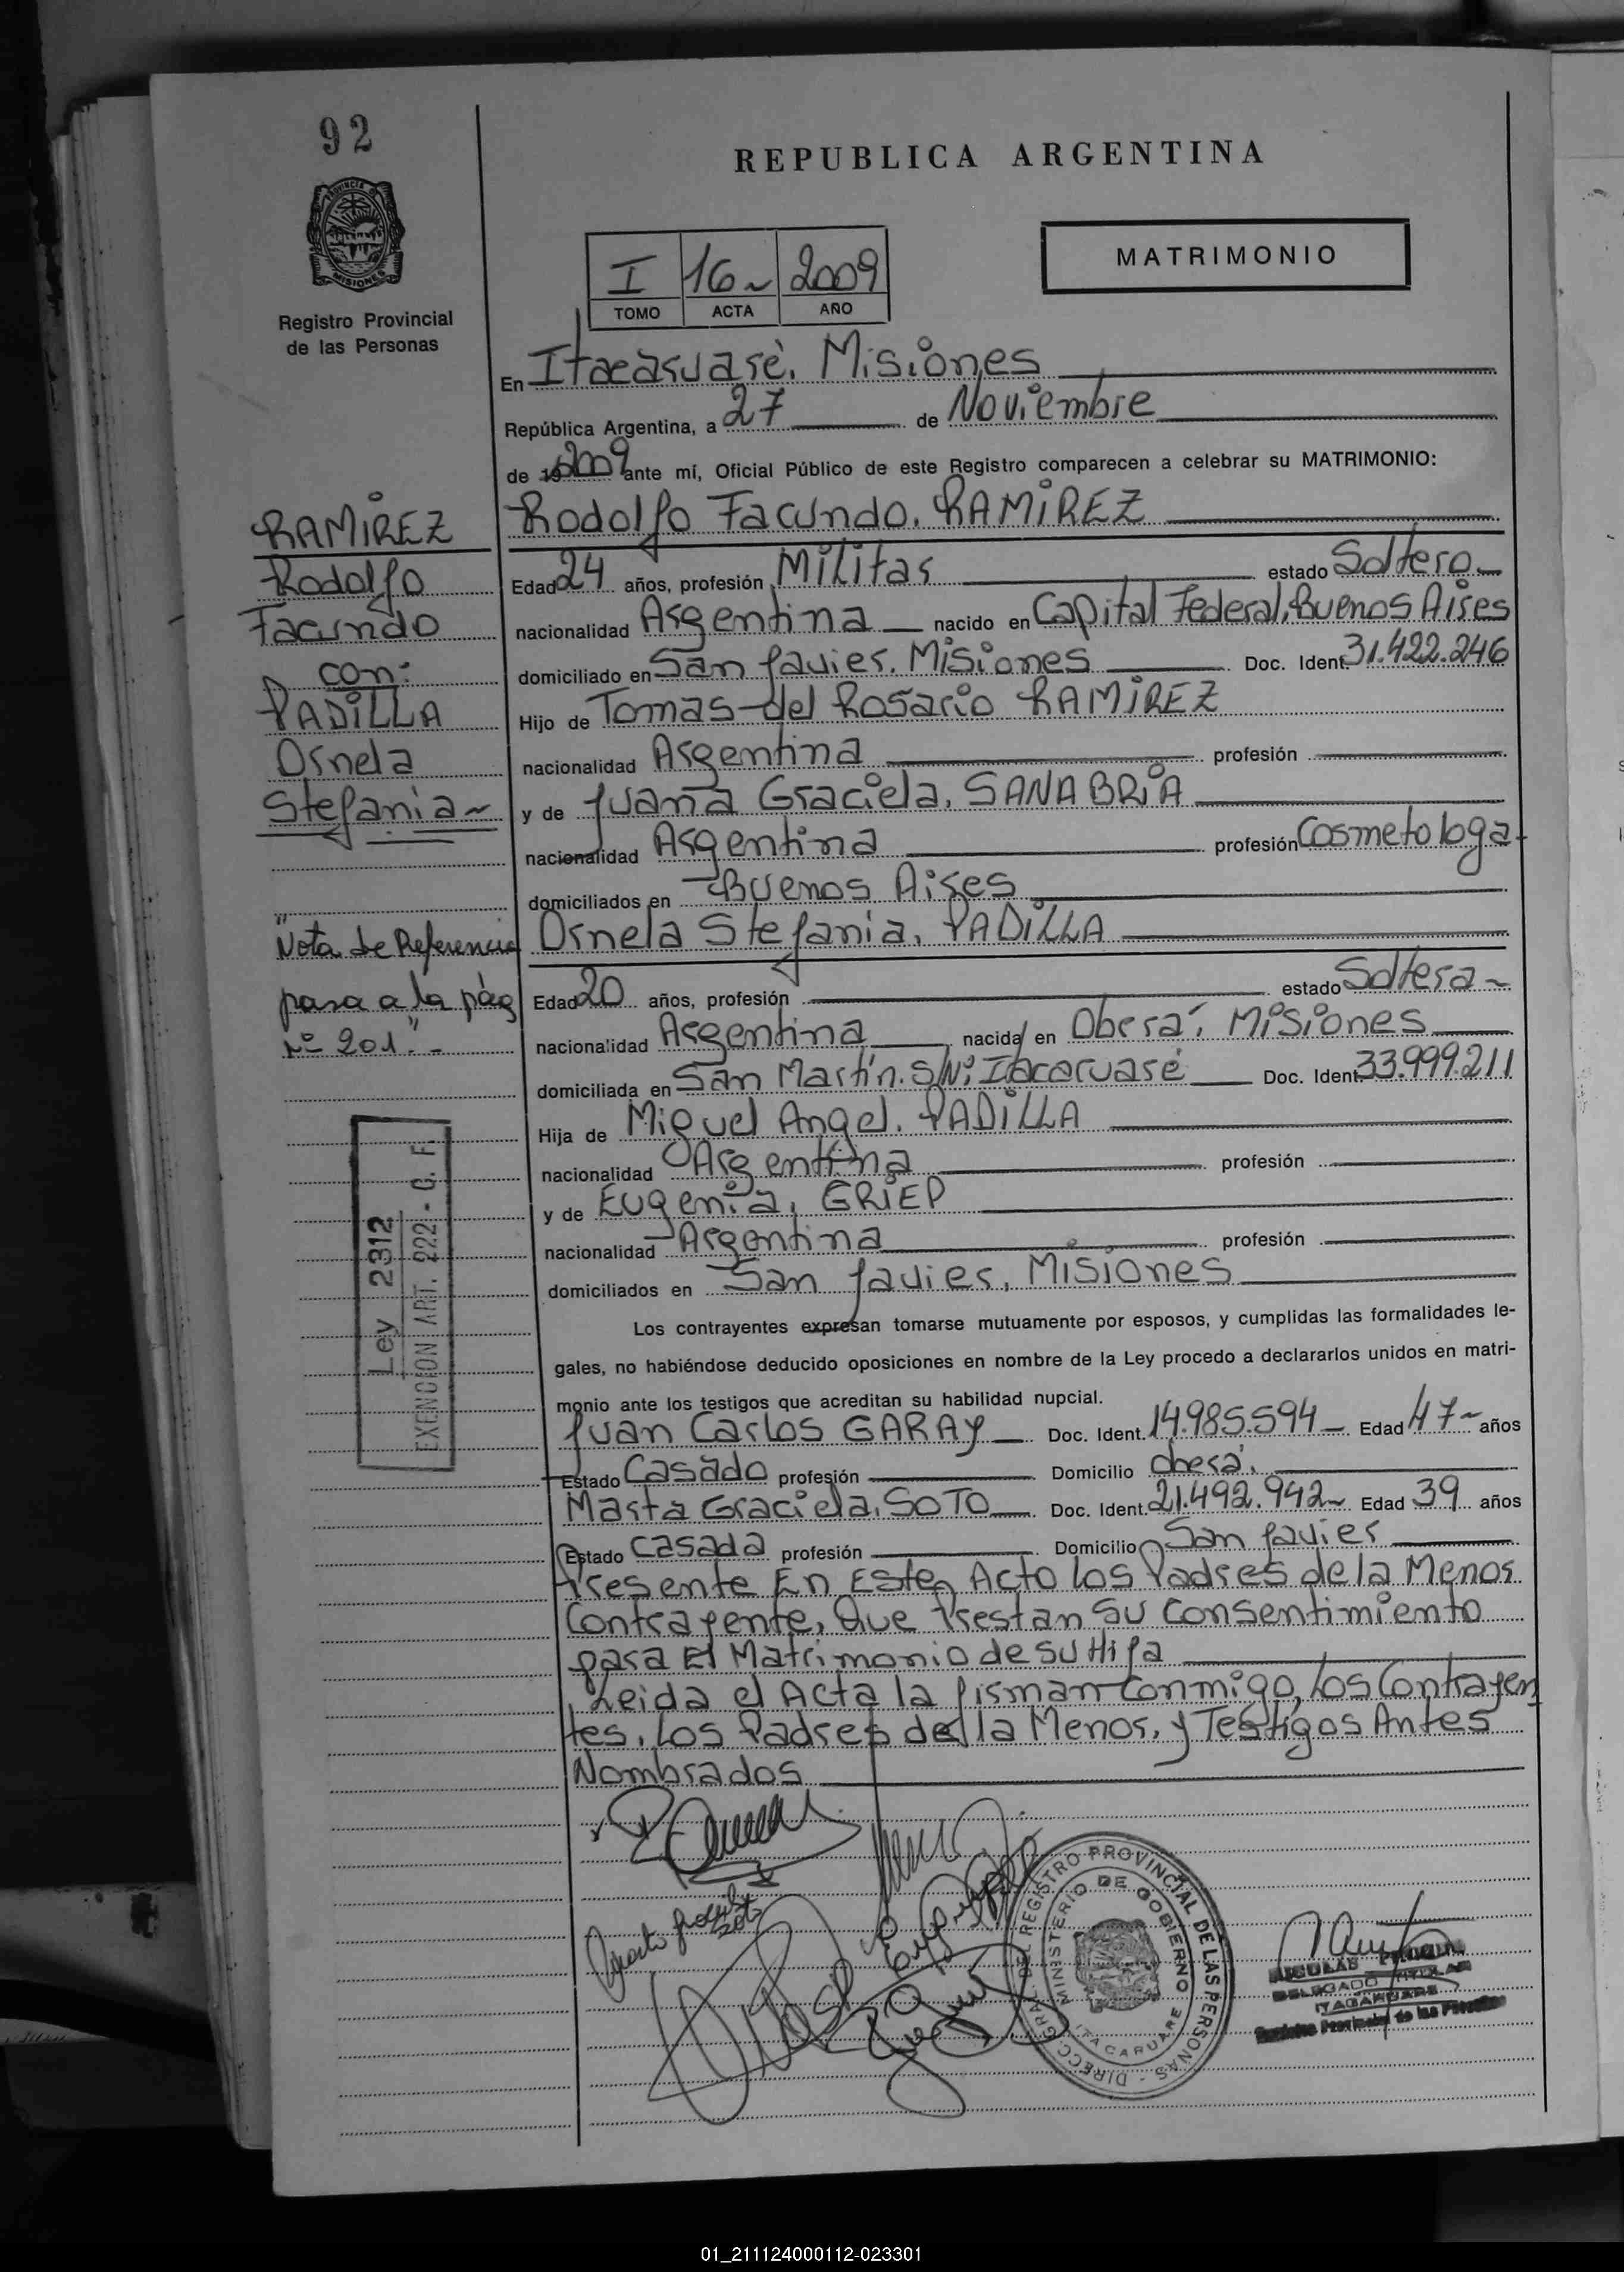 92
REPUBLICA ARGENTINA
PROVINCIA DE MISIONES
Registro Provincial
de las Personas
I 16 2009
TOMO ACTA AÑO
MATRIMONIO
En Itacaruaré, Misiones
República Argentina, a 27 de Noviembre
de 2009 ante mí, Oficial Público de este Registro comparecen a celebrar su MATRIMONIO:
Rodolfo Facundo, RAMIREZ
Edad 24 años, profesión Militar estado Soltero
nacionalidad Argentina nacido en Capital Federal, Buenos Aires
domiciliado en San Javier, Misiones Doc. Ident. 31.422.246
Hijo de Tomas del Rosario RAMIREZ
nacionalidad Argentina profesión
y de Juana Graciela, SANABRIA
nacionalidad Argentina profesión Cosmetologa
domiciliados en Buenos Aires
Ornela Stefania, PADILLA
Edad 20 años, profesión estado Soltera
nacionalidad Argentina nacida en Oberá, Misiones
domiciliada en San Martín S/N: Itacaruaré Doc. Ident. 33.999.211
Hija de Miguel Angel, PADILLA
nacionalidad Argentina profesión
y de Eugenia, GRIEP
nacionalidad Argentina profesión
domiciliados en San Javier, Misiones
Los contrayentes expresan tomarse mutuamente por esposos, y cumplidas las formalidades le-
gales, no habiéndose deducido oposiciones en nombre de la Ley procedo a declararlos unidos en matri-
monio ante los testigos que acreditan su habilidad nupcial.
Juan Carlos GARAY Doc. Ident. 14.985.594 Edad 47 años
Estado Casado profesión Domicilio Oberá
Marta Graciela, SOTO Doc. Ident. 21.492.942 Edad 39 años
Estado Casada profesión Domicilio San Javier
Presente En Este Acto los Padres de la Menor
Contrayente, Que Prestan Su Consentimiento
para El Matrimonio de su Hija
Leida el Acta la firman Conmigo, los Contrayen
tes, Los Padres de la Menor, y Testigos Antes
Nombrados
RAMIREZ
Rodolfo
Facundo
con:
PADILLA
Ornela
Stefania
"Nota de Referencia
pasa a la pág
nº 201".-
Ley 2312
EXENCION ART. 222 - C. F.
REGISTRO PROVINCIAL DE LAS PERSONAS
MINISTERIO DE GOBIERNO
ITACARUARE
DELEGADO TITULAR
ITACARUARE
Registro Provincial de las Personas
01_211124000112-023301